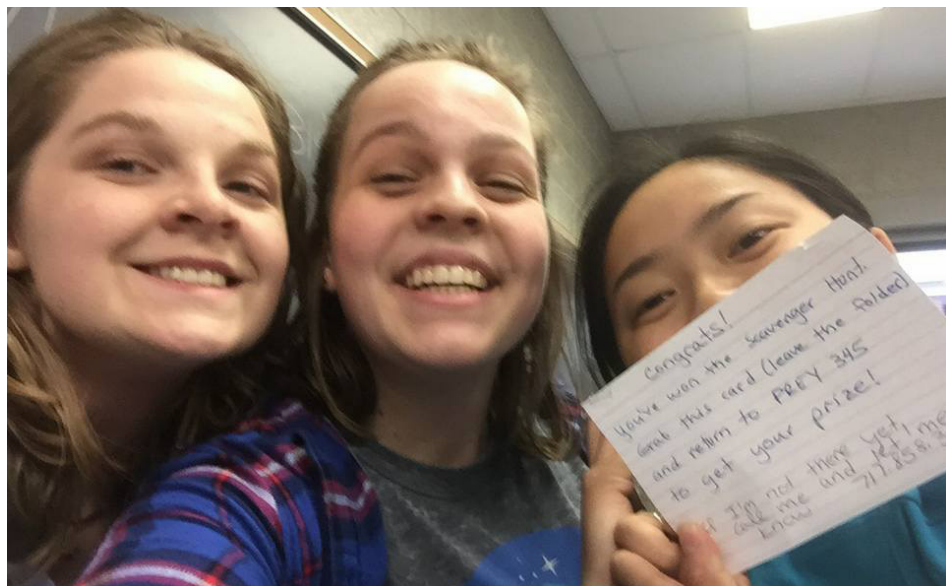 Congrats!
You've won the Scavenger Hunt.
Grab this card (leave the folder)
and return to FREY 345
to get your prize!
If I'm not there yet,
call me and let me
know 717.858.